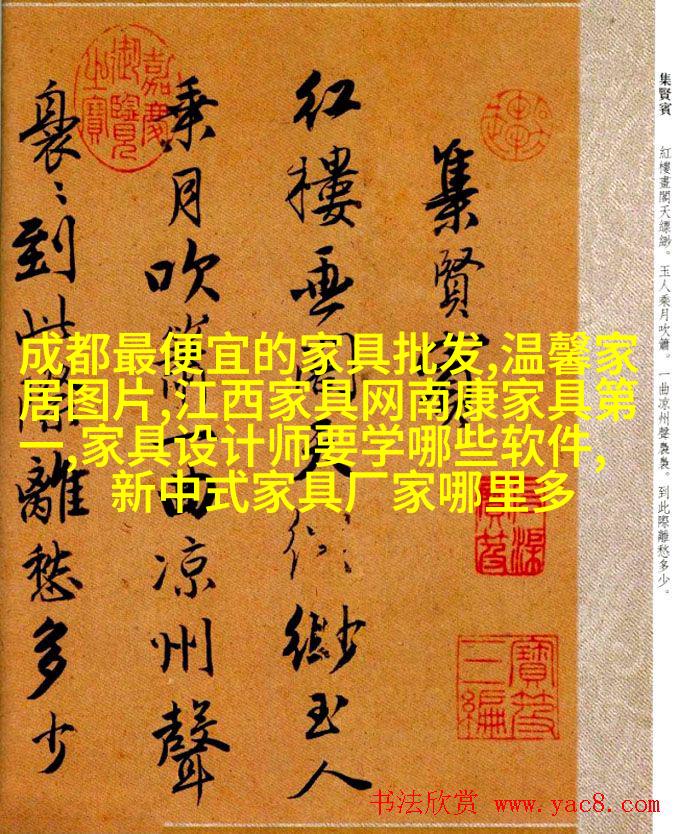 集賢賓
紅樓畫閣天縹緲。玉人乘月吹簫。一曲凉州聲裊裊。到此際離愁多少。
集賢賓
红樓画閣天縹緲玉人
乗月吹簫一曲凉州聲
裊〻到此際離愁多少
嘉慶御覽之寶
寶笈三編
成都最便宜的家具批发,温馨家
居图片,江西家具网南康家具第
一,家具设计师要学哪些软件,
新中式家具厂家哪里多
书法欣赏 www.yac8.com